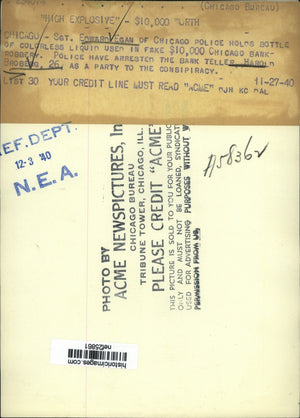 (CHICAGO BUREAU)
"HIGH EXPLOSIVE" - $10,000 WORTH
CHICAGO - SGT. EDWARD EGAN OF CHICAGO POLICE HOLDS BOTTLE
OF COLORLESS LIQUID USED IN FAKE $10,000 CHICAGO BANK-
ROBBERY. POLICE HAVE ARRESTED THE BANK TELLER, HAROLD
BROBERG, 26, AS A PARTY TO THE CONSPIRACY.
LYST 30 YOUR CREDIT LINE MUST READ "ACME" 11-27-40
EF. DEPT.
12-3 '40
N.E.A.
A58362
PHOTO BY
ACME NEWSPICTURES, In
CHICAGO BUREAU
TRIBUNE TOWER, CHICAGO, ILL.
PLEASE CREDIT "ACME"
THIS PICTURE IS SOLD TO YOU FOR YOUR PUBLIC
ONLY AND MUST NOT BE LOANED, SYNDICAT
USED FOR ADVERTISING PURPOSES WITHOUT W
PERMISSION FROM US
historicimages.com
net25861